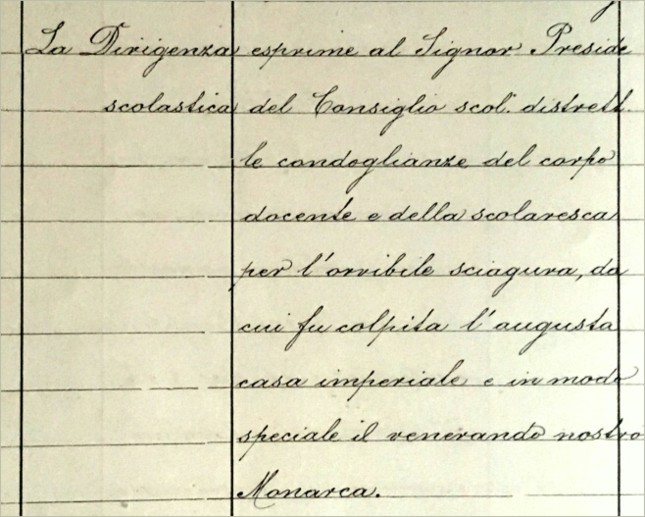 La Dirigenza esprime al Signor Preside
scolastica del Consiglio scol. distrett.
le condoglianze del corpo
docente e della scolaresca
per l'orribile sciagura, da
cui fu colpita l'augusta
casa imperiale e in modo
speciale il venerando nostro
Monarca.